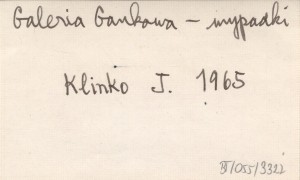 Galeria Gankowa - wypadki
Klinko J. 1965
BJ/055/3322